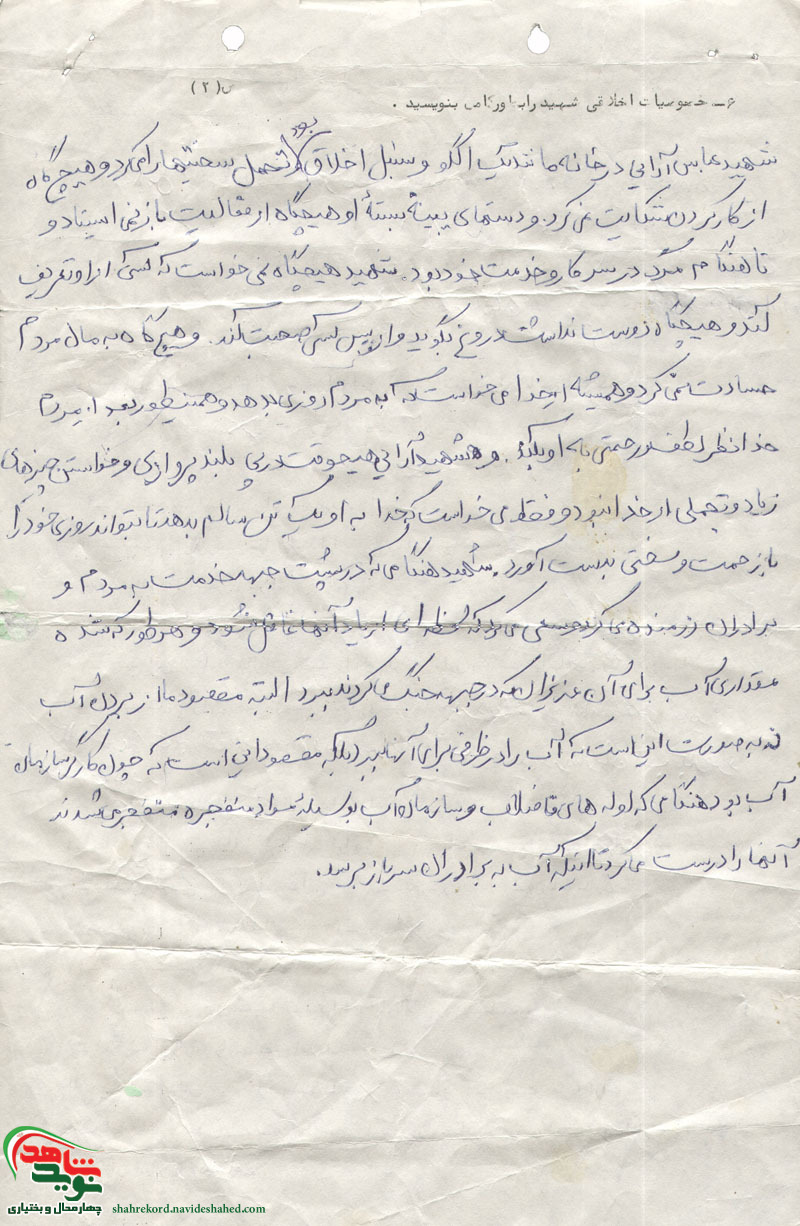 ص(۲)
۶ــ خصوصیات اخلاقی شهید را بطور کامل بنویسید .
شهید عباس آرائی در خانه مانند یک الگو و سنبل اخلاق بود تحمل سختیها را می کرد و هیچ گاه
از کار کردن شکایت نمی کرد. و دستهای پینه بستهٔ او هیچگاه از فعالیت باز نمی ایستاد و
تا هنگام مرگ در سر کار و خدمت خود بود. شهید هیچگاه نمی خواست که کسی از او تعریف
کند و هیچگاه دوست نداشت دروغ بگوید و از پس کسی صحبت کند. و هیچ گاه به مال مردم
حسادت نمی کرد و همیشه از خدا می خواست که به مردم روزی بدهد و همینطور بعد از مردم
خدا نظر لطف و رحمتی به او بکند. و شهید آرائی هیچوقت در پی بلند پروازی و خواستن چیزهای
زیاد و تجملی از خدا نبود و فقط می خواست که خدا به او یک تن سالم بدهد تا بتواند روزی خود را
با زحمت و سختی بدست آورد. شهید هنگامی که در پشت جبهه خدمت به مردم و
برادران رزمنده می کرد و سعی می کرد که لحظه ای از یاد آنها غافل نشود و هر طور که شده
مقداری آب برای آن عزیزان که در جبهه جنگ می کردند ببرد البته مقصود ما از بردن آب
نه به صورت این است که آب را در ظرفی برای آنها ببرد بلکه مقصود این است که چون کارگر سازمان
آب بود هنگامی که لوله های فاضلاب و سازمان آب بوسیلهٔ مواد منفجره منفجر می شدند
آنها را درست می کرد تا اینکه آب به برادران سرباز برسد.
نوید شاهد
چهارمحال و بختیاری
shahrekord.navideshahed.com